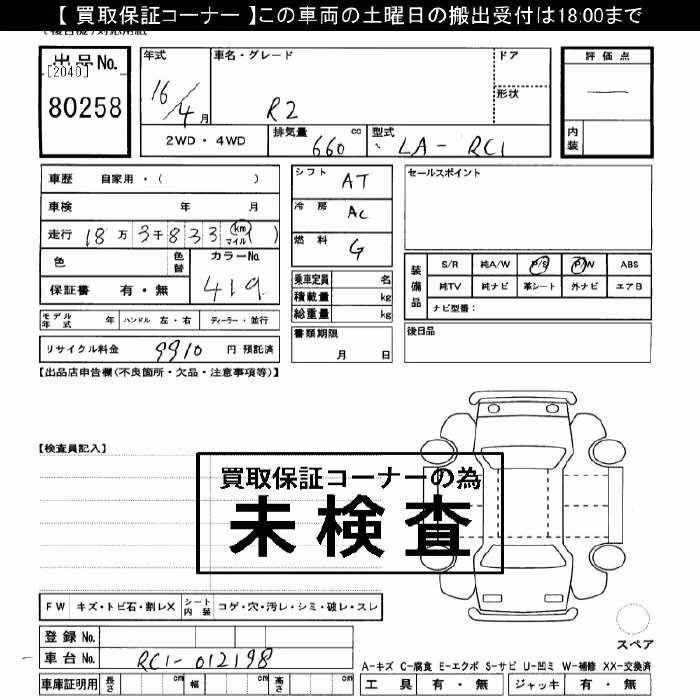 【 買取保証コーナー 】この車両の土曜日の搬出受付は18:00まで
出品No.
[2040]
80258
年式
16/4月
車名・グレード
R2
ドア
形状
評価点
―
内装
2WD・4WD
排気量 660 cc
型式 LA-RC1
車歴 自家用・( )
車検 年 月
走行 18万3千833 km マイル )
色
色替
カラーNo.
419
保証書 有・無
シフト AT
冷房 AC
燃料 G
乗車定員 名
積載量 kg
総重量 kg
セールスポイント
装備品
S/R 純A/W P/S P/W ABS
純TV 純ナビ 革シート 外ナビ エアB
ナビ型番:
モデル年式 年 ハンドル 左・右 ディーラー・並行
書類期限
月 日
後日品
リサイクル料金 9910 円 預託済
【出品店申告欄(不良箇所・欠品・注意事項等)】
【検査員記入】
買取保証コーナーの為
未検査
FW キズ・トビ石・割レX シート内装 コゲ・穴・汚レ・シミ・破レ・スレ
スペア
登録No.
車台No. RC1-012198
A-キズ C-腐食 E-エクボ S-サビ U-凹ミ W-補修 XX-交換済
車庫証明用 長さ cm 幅 cm 高さ cm
工具 有・無 ジャッキ 有・無